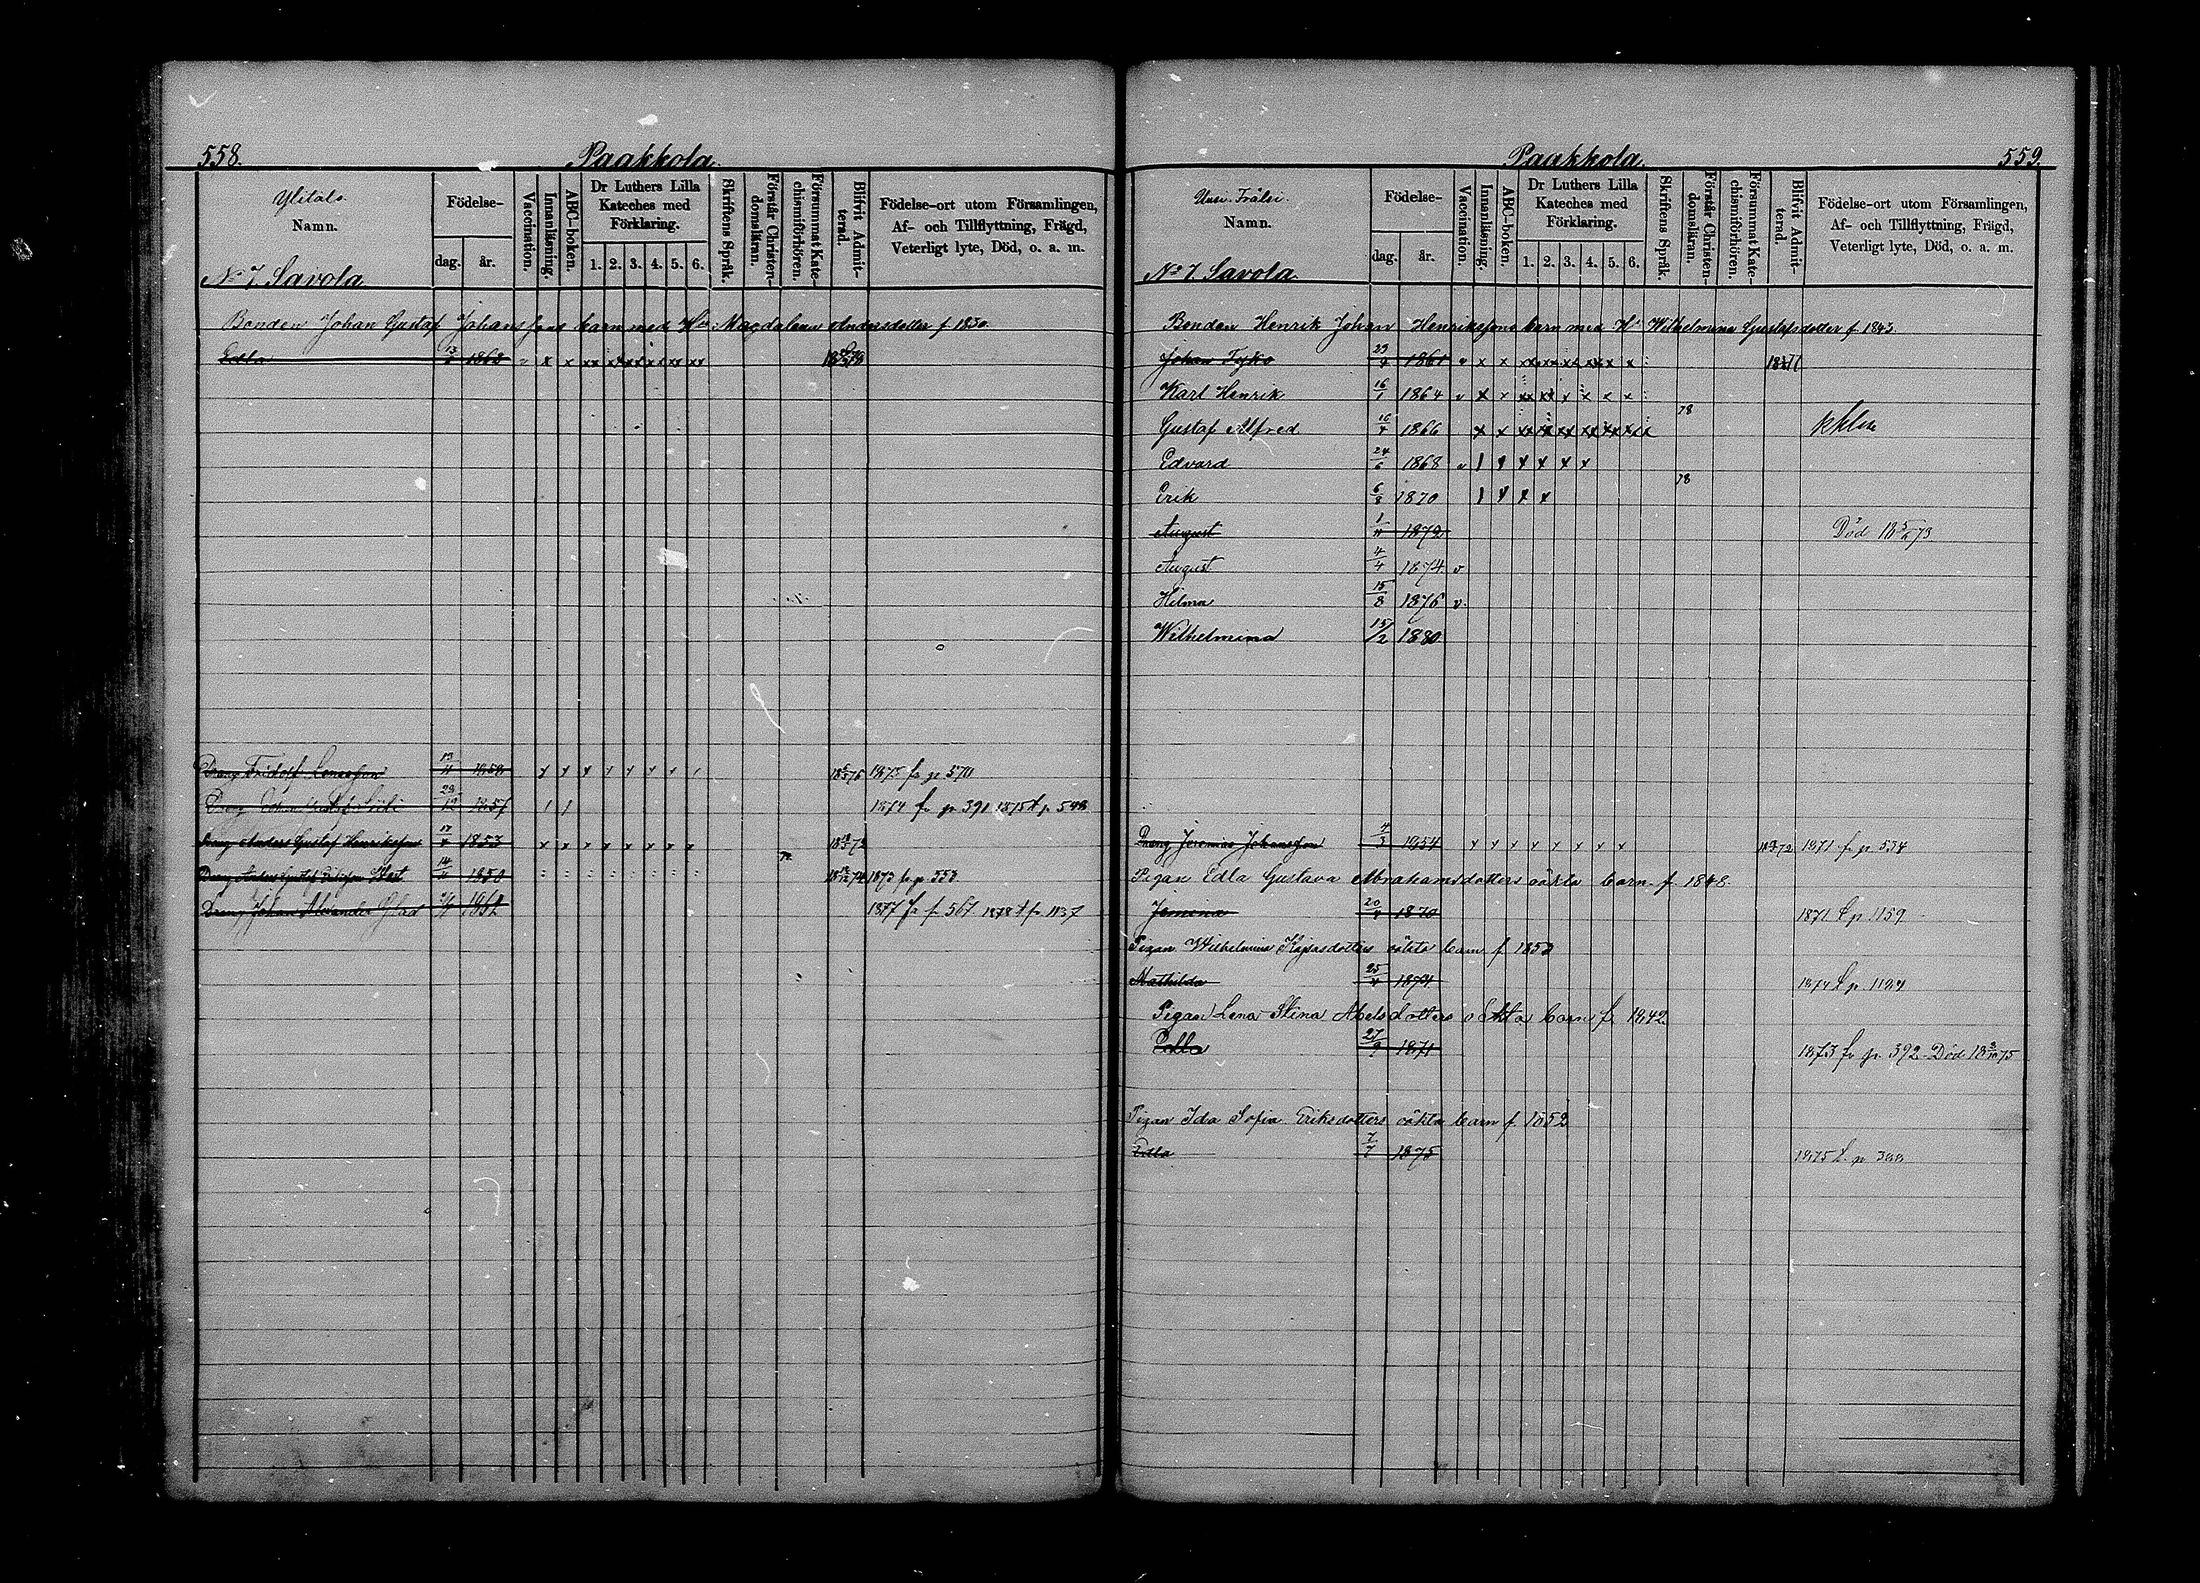 558.
Paakkola.
Ylitalo
Namn.
Födelse-
dag.
år.
Vaccination.
Innanläsning.
ABC-boken.
Dr Luthers Lilla
Kateches med
Förklaring.
1. 2. 3. 4. 5. 6.
Skriftens Språk.
Förstår Christen-
domsläran.
Försummat Kate-
chismiförhören.
Blifvit Admit-
terad.
Födelse-ort utom Församlingen,
Af- och Tillflyttning, Frägd,
Veterligt lyte, Död, o. a. m.
No 7. Savola
Bonden Johan Gustaf Johanssons barn med Hu Magdalena Andersdotter f 1830.
Edla
Dreng Fridolf 13/11 1858 1875 fr p 570
Dreng Johan Gustaf 1857 1874 fr p 391 1875 t p 548
Dreng Anders Gustaf Henriksson 17/4 1853
Dreng Anders Gustaf 14/11 1850 1873 fr p 553
Dreng Johan Alexander Glad 1877 fr p 567 1878 t p 1137
Paakkola.
559.
Uusi Frälsi
Namn.
Födelse-
dag.
år.
Vaccination.
Innanläsning.
ABC-boken.
Dr Luthers Lilla
Kateches med
Förklaring.
1. 2. 3. 4. 5. 6.
Skriftens Språk.
Förstår Christen-
domsläran.
Försummat Kate-
chismiförhören.
Blifvit Admit-
terad.
Födelse-ort utom Församlingen,
Af- och Tillflyttning, Frägd,
Veterligt lyte, Död, o. a. m.
No 7. Savola
Bonden Henrik Johan Henrikssons barn med Hu Wilhelmina Gustafsdotter f 1843
Johan Tyko 1861 v x x
Karl Henrik 16/1 1864 v x x
Gustaf Alfred 16/4 1866 x x 78
Edvard 24/6 1868 v
Erik 6/8 1870 78
August 1/11 1872 Död
August 4/4 1874 v
Hilma 15/8 1876 v
Wilhelmina 15/2 1880
Dreng Jeremias Johansson 4/3 1854 x x x x x x x x 1871 fr p 534
Pigan Edla Gustava Abrahamsdotters oäkta barn f 1848
Jemina 1870 1871 t p 1159
Pigan Wilhelmina Kajsasdotters oäkta barn f 1850
Mathilda 25/4 1874 1874 t p 1124
Pigan Lena Stina Abelsdotters oäkta barn f 1842
Edla 27/9 1871 1873 fr p 392 Död
Pigan Ida Sofia Eriksdotters oäkta barn f 1852
Edla 7/7 1875 1875 t p